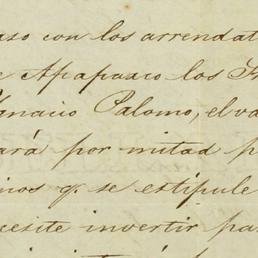 aso con los arrendat
e Apapasco los Fr
gnacio Palomo, el va
ará por mitad p
inos q. se estipule
cesite invertir par